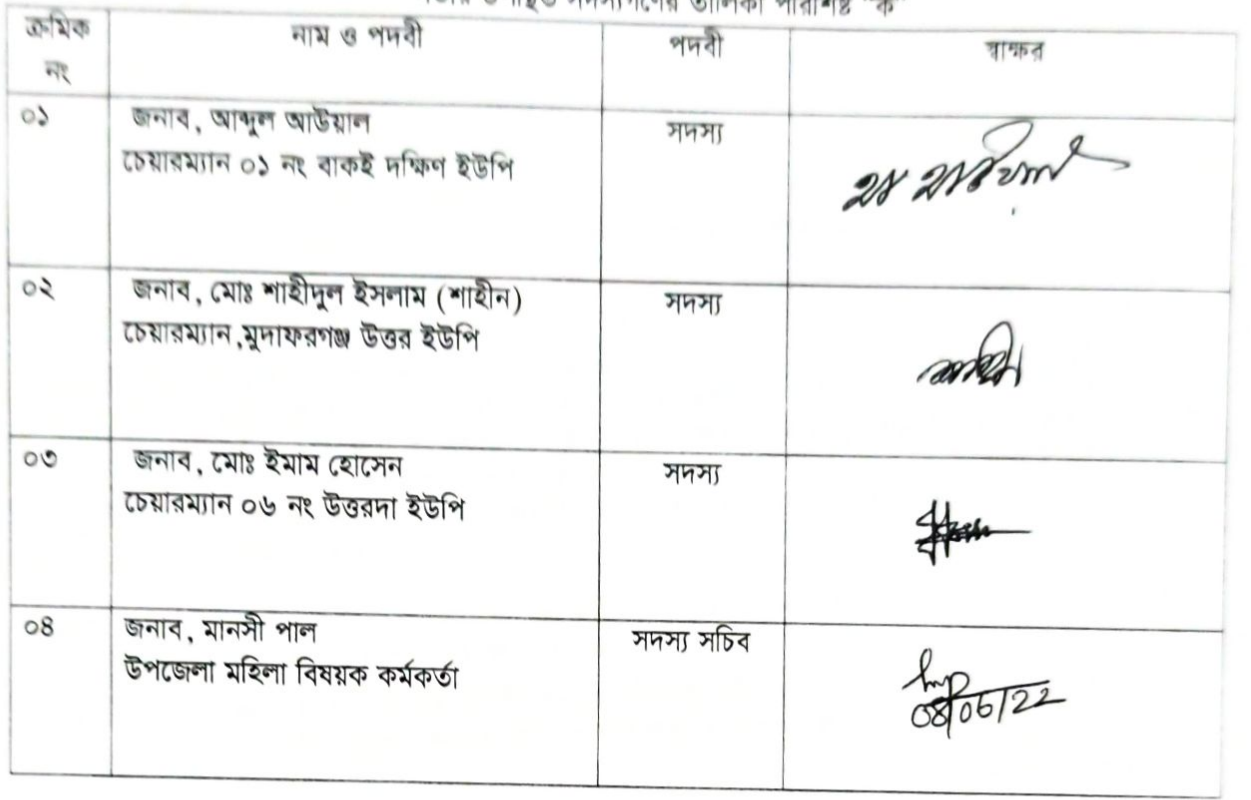 সদস্যগণের তালিকা পরিশিষ্ট "ক"
ক্রমিক নং
নাম ও পদবী
পদবী
স্বাক্ষর
০১
জনাব, আব্দুল আউয়াল
চেয়ারম্যান ০১ নং বাকই দক্ষিণ ইউপি
সদস্য
০২
জনাব, মোঃ শাহীদুল ইসলাম (শাহীন)
চেয়ারম্যান,মুদাফরগঞ্জ উত্তর ইউপি
সদস্য
০৩
জনাব, মোঃ ইমাম হোসেন
চেয়ারম্যান ০৬ নং উত্তরদা ইউপি
সদস্য
০৪
জনাব, মানসী পাল
উপজেলা মহিলা বিষয়ক কর্মকর্তা
সদস্য সচিব
08/06/22